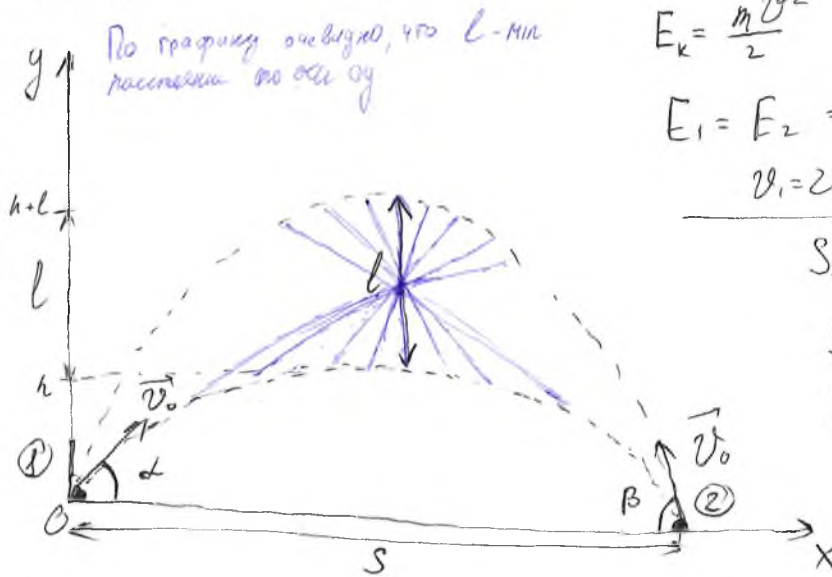 По графику очевидно, что l-min
расстояние по оси oy
E_k = mv²/2
E₁ = E₂ =
v₁ = 2
S
y
h+l
l
l
h
v₀
①
α
O
β
v₀
②
S
X